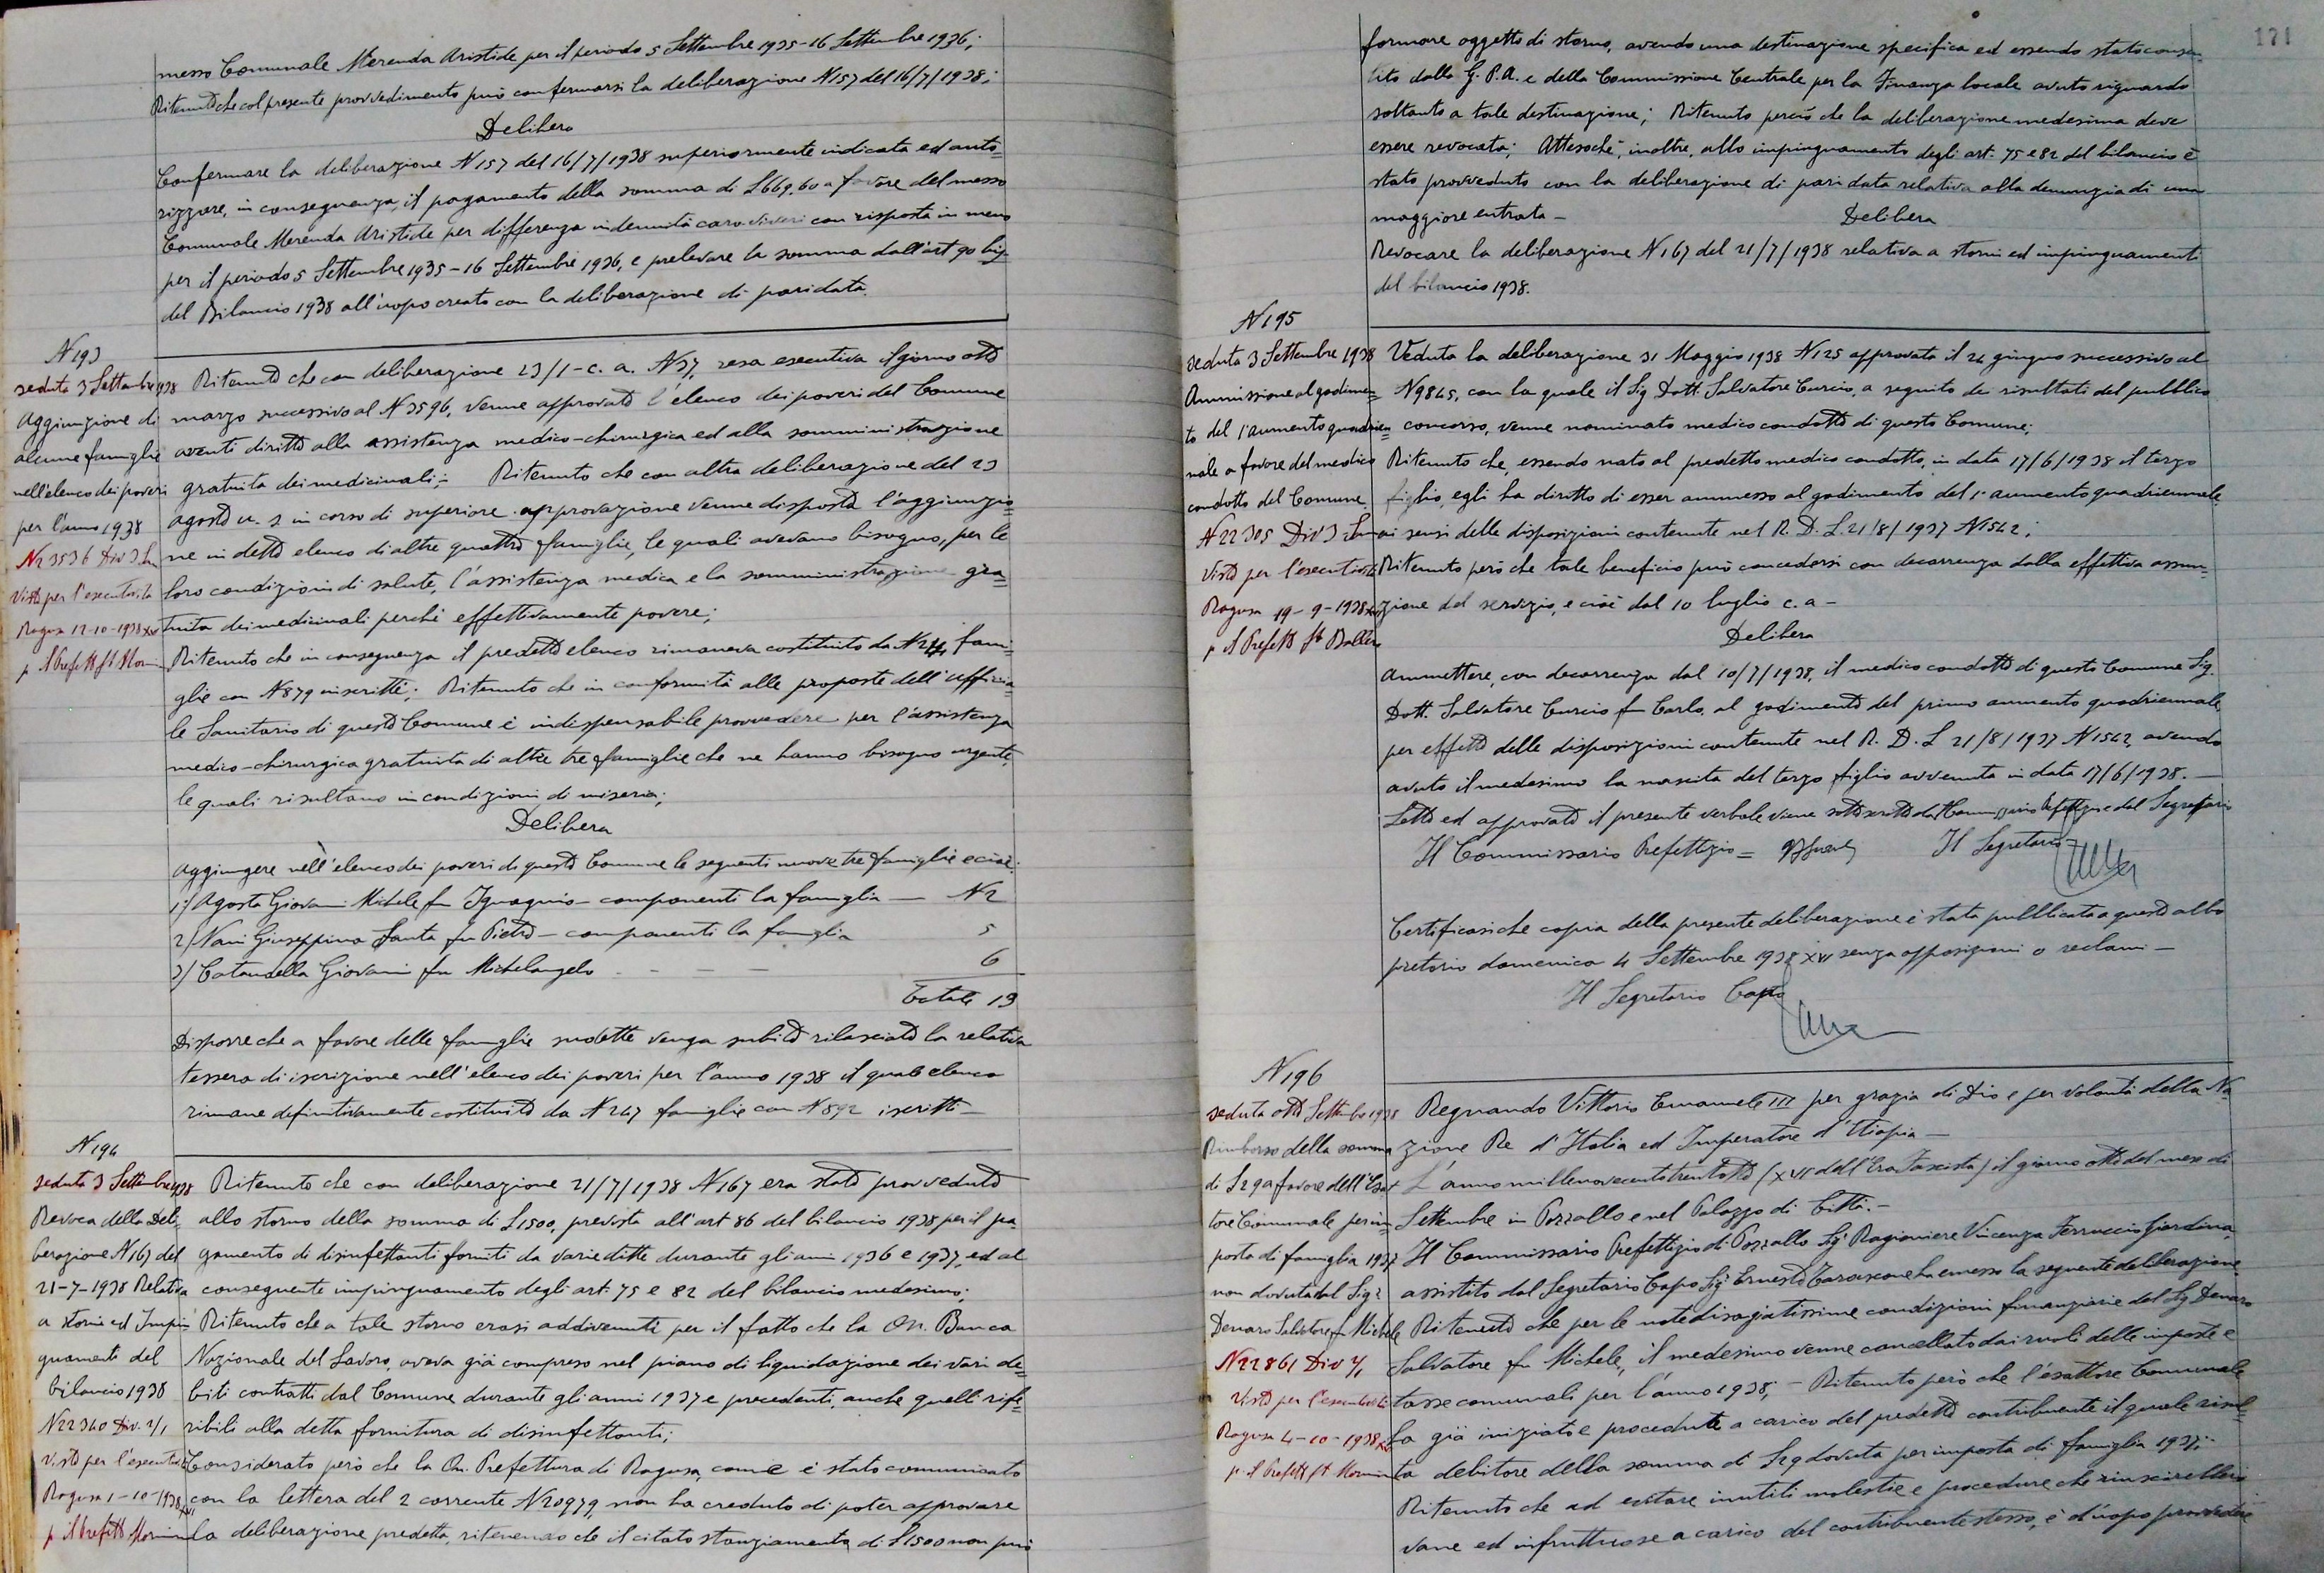 messo Comunale Merenda Aristide per il periodo 5 Settembre 1935-16 Settembre 1936;
Ritenuto che col presente provvedimento può confermarsi la deliberazione N 157 del 16/7/1938;
Delibera
Confermare la deliberazione N 157 del 16/7/1938 superiormente indicata ed auto=
rizzare, in conseguenza, il pagamento della somma di £ 669,60 a favore del messo
Comunale Merenda Aristide per differenza indennità caro-viveri con risposta in meno
per il periodo 5 Settembre 1935-16 Settembre 1936, e prelevare la somma dall'art 90 bis
del Bilancio 1938 all'uopo creato con la deliberazione di pari data.
N 193
seduta 3 Settembre 1938
Aggiunzione di
alcune famiglie
nell'elenco dei poveri
per l'anno 1938
N 23536 Div 3
Visto per l'esecutorietà
Ragusa 12-10-1938 XVI
p Il Prefetto
Ritenuto che con deliberazione 23/1- c. a. N 37, resa esecutiva il giorno otto
marzo successivo al N 3596, venne approvato l'elenco dei poveri del Comune
aventi diritto alla assistenza medico-chirurgica ed alla somministrazione
gratuita dei medicinali;- Ritenuto che con altra deliberazione del 23
agosto u. s in corso di superiore approvazione venne disposta l'aggiunzio=
ne in detto elenco di altre quattro famiglie, le quali avevano bisogno, per le
loro condizioni di salute, l'assistenza medica e la somministrazione gra=
tuita dei medicinali perché effettivamente povere;
Ritenuto che in conseguenza il predetto elenco rimaneva costituito da N 244 fami=
glie con N 879 inscritti; Ritenuto che in conformità alle proposte dell'Ufficia=
le Sanitario di questo Comune è indispensabile provvedere per l'assistenza
medico-chirurgica gratuita di altre tre famiglie che ne hanno bisogno urgente,
le quali risultano in condizioni di miseria;
Delibera
Aggiungere nell'elenco dei poveri di questo Comune le seguenti nuove tre famiglie e cioè:
1:/ Agosta Giovanni Michele fu Ignazio - componenti la famiglia — N 2
2/ Nani Giuseppina Santa fu Pietro - componenti la famiglia 5
3/ Catandella Giovanni fu Michelangelo - - - 6
Totale 13
Disporre che a favore delle famiglie sudette venga subito rilasciato la relativa
tessera di iscrizione nell'elenco dei poveri per l'anno 1938 il quale elenco
rimane definitivamente costituito da N 247 famiglie con N 892 iscritti -
N 194
seduta 3 Settembre 1938
Revoca della Deli
berazione N 167 del
21-7-1938 Relativa
a storni ed Impin=
guamenti del
bilancio 1938
N 22340 Div. 2/1
Visto per l'esecutorietà
Ragusa 1-10-1938 XVI
p Il Prefetto
Ritenuto che con deliberazione 21/7/1938 N 167 era stato provveduto
allo storno della somma di £ 1500, prevista all'art 86 del bilancio 1938 per il pa=
gamento di disinfettanti forniti da varie ditte durante gli anni 1936 e 1937, ed al
conseguente impinguamento degli art. 75 e 82 del bilancio medesimo;
Ritenuto che a tale storno erasi addivenuti per il fatto che la On. Banca
Nazionale del Lavoro, aveva già compreso nel piano di liquidazione dei vari de=
biti contratti dal Comune durante gli anni 1937 e precedenti, anche quelli rife=
ribili alla detta fornitura di disinfettanti;
Considerato però che la On. Prefettura di Ragusa, come è stato comunicato
con la lettera del 2 corrente N 20979, non ha creduto di poter approvare
la deliberazione predetta, ritenendo che il citato stanziamento di £ 1500 non può
171
formare oggetto di storno, avendo una destinazione specifica ed essendo stato consen=
tito dalla G. P. A. e della Commissione Centrale per la Finanza locale avuto riguardo
soltanto a tale destinazione; Ritenuto perciò che la deliberazione medesima deve
essere revocata; Attesoché, inoltre, allo impinguamento degli art. 75 e 82 del bilancio è
stato provveduto con la deliberazione di pari data relativa alla denunzia di una
maggiore entrata —
Delibera
Revocare la deliberazione N 167 del 21/7/1938 relativa a storni ed impinguamenti
del bilancio 1938.
N 195
seduta 3 Settembre 1938
Ammissione al godimen=
to del 1° aumento quadrien=
nale a favore del medico
condotto del Comune.
N 22305 Div 3
Visto per l'esecutorietà
Ragusa 19-9-1938 XVI
p Il Prefetto
Veduta la deliberazione 31 Maggio 1938 N 125 approvata il 24 giugno successivo al
N 9845, con la quale il Sig Dott. Salvatore Curcio, a seguito dei risultati del pubblico
concorso, venne nominato medico condotto di questo Comune;
Ritenuto che, essendo nato al predetto medico condotto, in data 17/6/1938 il terzo
figlio, egli ha diritto di esser ammesso al godimento del 1° aumento quadriennale,
ai sensi delle disposizioni contenute nel R. D. L. 21/8/1937 N 1542;
Ritenuto però che tale beneficio può concedersi con decorrenza dalla effettiva assun=
zione del servizio, e cioè dal 10 luglio c. a —
Delibera
Ammettere, con decorrenza dal 10/7/1938, il medico condotto di questo Comune Sig.
Dott. Salvatore Curcio fu Carlo, al godimento del primo aumento quadriennale,
per effetto delle disposizioni contenute nel R. D. L 21/8/1937 N 1542, avendo
avuto il medesimo la nascita del terzo figlio avvenuta in data 17/6/1938. —
Letto ed approvato il presente verbale viene sottoscritto dal Commissario Prefettizio e dal Segretario
Il Commissario Prefettizio = Il Segretario
Certificasi che copia della presente deliberazione è stata pubblicata a questo albo
pretorio domenica 4 Settembre 1938 XVI senza opposizioni o reclami —
Il Segretario Capo
N 196
seduta otto Settembre 1938
Rimborso della somma
di £ 29 a favore dell'Esat
tore Comunale per im=
posta di famiglia 1937
non dovuta dal Sigr
Denaro Salvatore fu Michele
N 22861 Div 2/1
Visto per l'esecutorietà
Ragusa 4-10-1938 XVI
p. Il Prefetto
Regnando Vittorio Emanuele III per grazia di Dio e per volontà della Na=
zione Re d'Italia ed Imperatore d'Etiopia —
L'anno millenovecentotrentotto (XVI dell'Era Fascista) il giorno otto del mese di
Settembre in Pozzallo e nel Palazzo di Città. —
Il Commissario Prefettizio di Pozzallo Sigr Ragioniere Vincenzo Ferruccio Giardina,
assistito dal Segretario Capo Sigr Ernesto Tarascone ha emesso la seguente deliberazione
Ritenuto che per le note disagiatissime condizioni finanziarie del Sig Denaro
Salvatore fu Michele, il medesimo venne cancellato dai ruoli delle imposte e
tasse comunali per l'anno 1938; - Ritenuto però che l'esattore Comunale
ha già iniziato e procedute a carico del predetto contribuente il quale risul=
ta debitore della somma di £ 29 dovuta per imposta di famiglia 1937;
Ritenuto che ad evitare inutili molestie e procedure che riuscirebbero
vane ed infruttuose a carico del contribuente stesso, è d'uopo provvedere